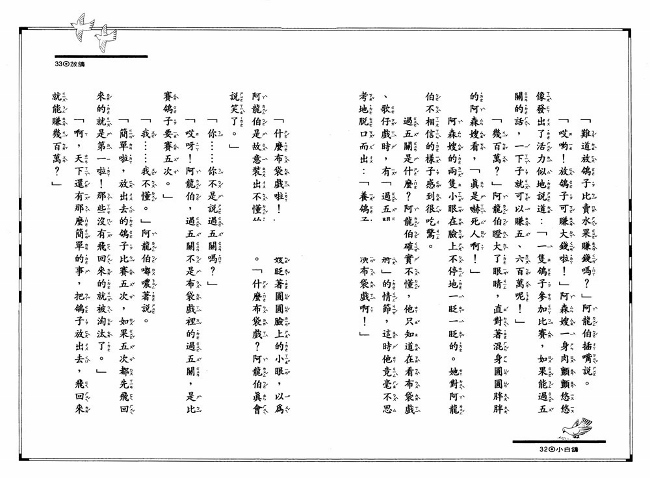 「難道放鴿子比賣水果賺錢嗎？」阿龍伯插嘴說。
「哎喲！放鴿子可賺大錢啦！」阿森嫂一身肉顫悠悠
像發出了活力似地說道：「一隻鴿子參加比賽，如果能過五
關的話，一下子就可以賺五、六百萬呢！」
「幾百萬？」阿龍伯瞪大了眼睛，直對著混身圓圓胖胖
的阿森嫂看，「真是嚇死人啊！」
阿森嫂的兩隻小眼在臉上不停地一眨一眨的。她對阿龍
伯不相信的樣子感到很吃驚。
過五關是什麼？阿龍伯確實不懂，他只知道在看布袋戲
、歌仔戲時，有「過五關 」的情節，這時他竟毫不思
考地脫口而出：「養鴿子 布袋戲啊！」
「什麼布袋戲啦！ 眨著圓圓臉上的小眼，以為
阿龍伯是故意裝出不懂的 。「什麼布袋戲？阿龍伯真會
說笑了。」
「你……不是說過五關嗎？」
「哎呀！阿龍伯，過五關不是布袋戲裡的過五關，是比
賽鴿子要賽五次。」
「我……我不懂。」阿龍伯嘟噥著說。
「簡單啦，放出去的鴿子比賽五次，如果五次都先飛回
來的就是第一啦！那些沒有飛回來的就被淘汰了。」
「啊，天下還有那麼簡單的事，把鴿子放出去，飛回來
就能賺幾百萬？」
32⊙小白鴿
33⊙放鴿